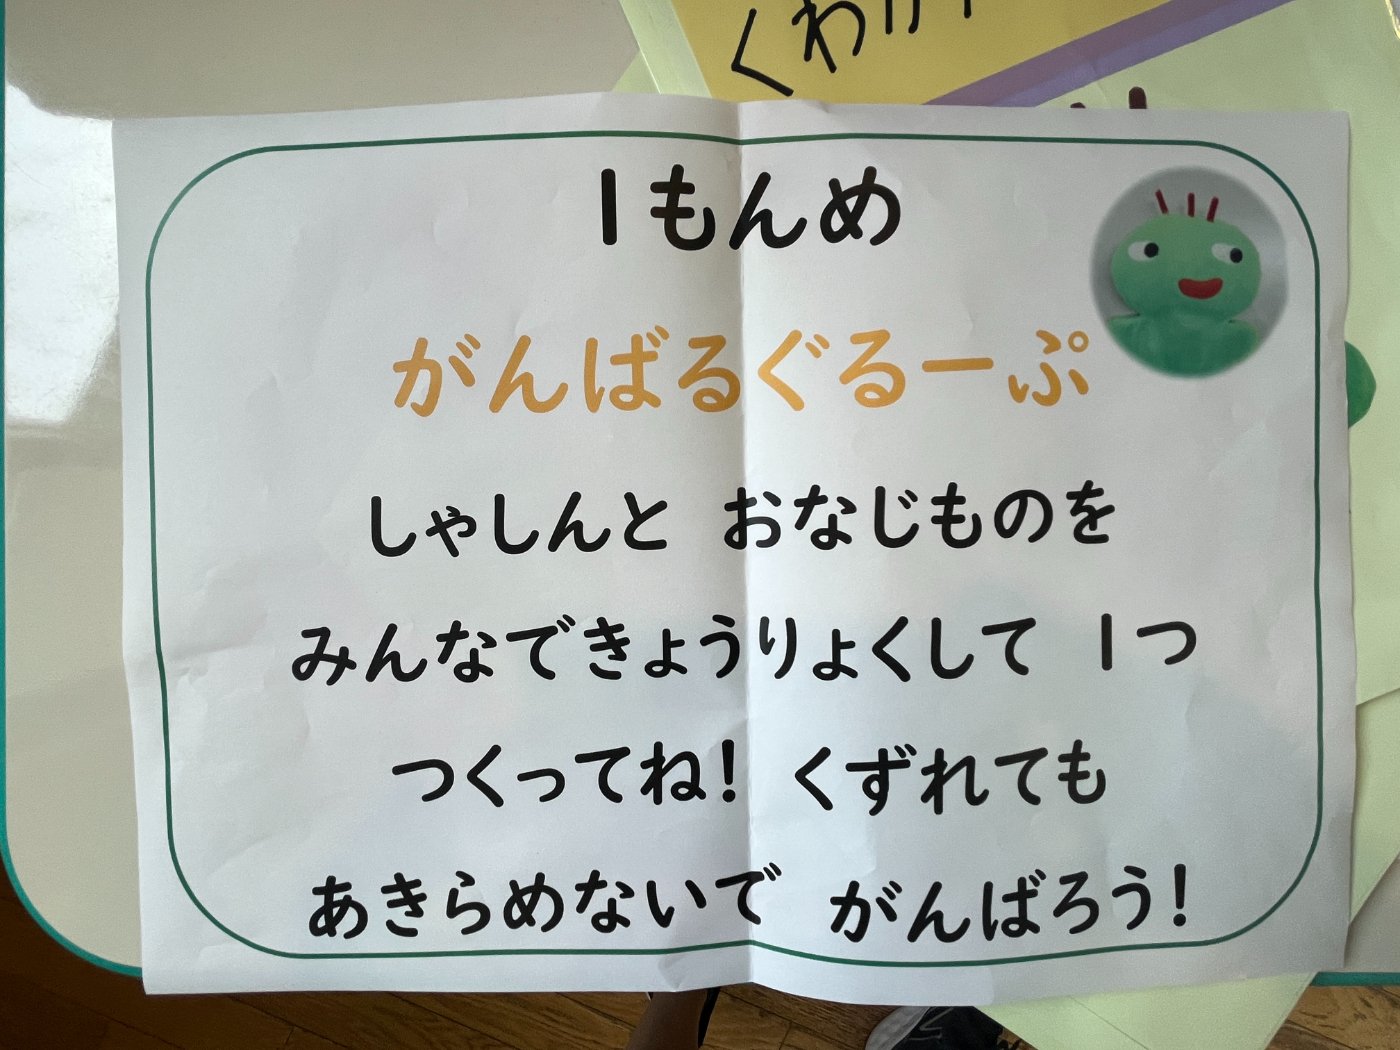 1もんめ
がんばるぐるーぷ
しゃしんと おなじものを
みんなできょうりょくして 1つ
つくってね! くずれても
あきらめないで がんばろう!